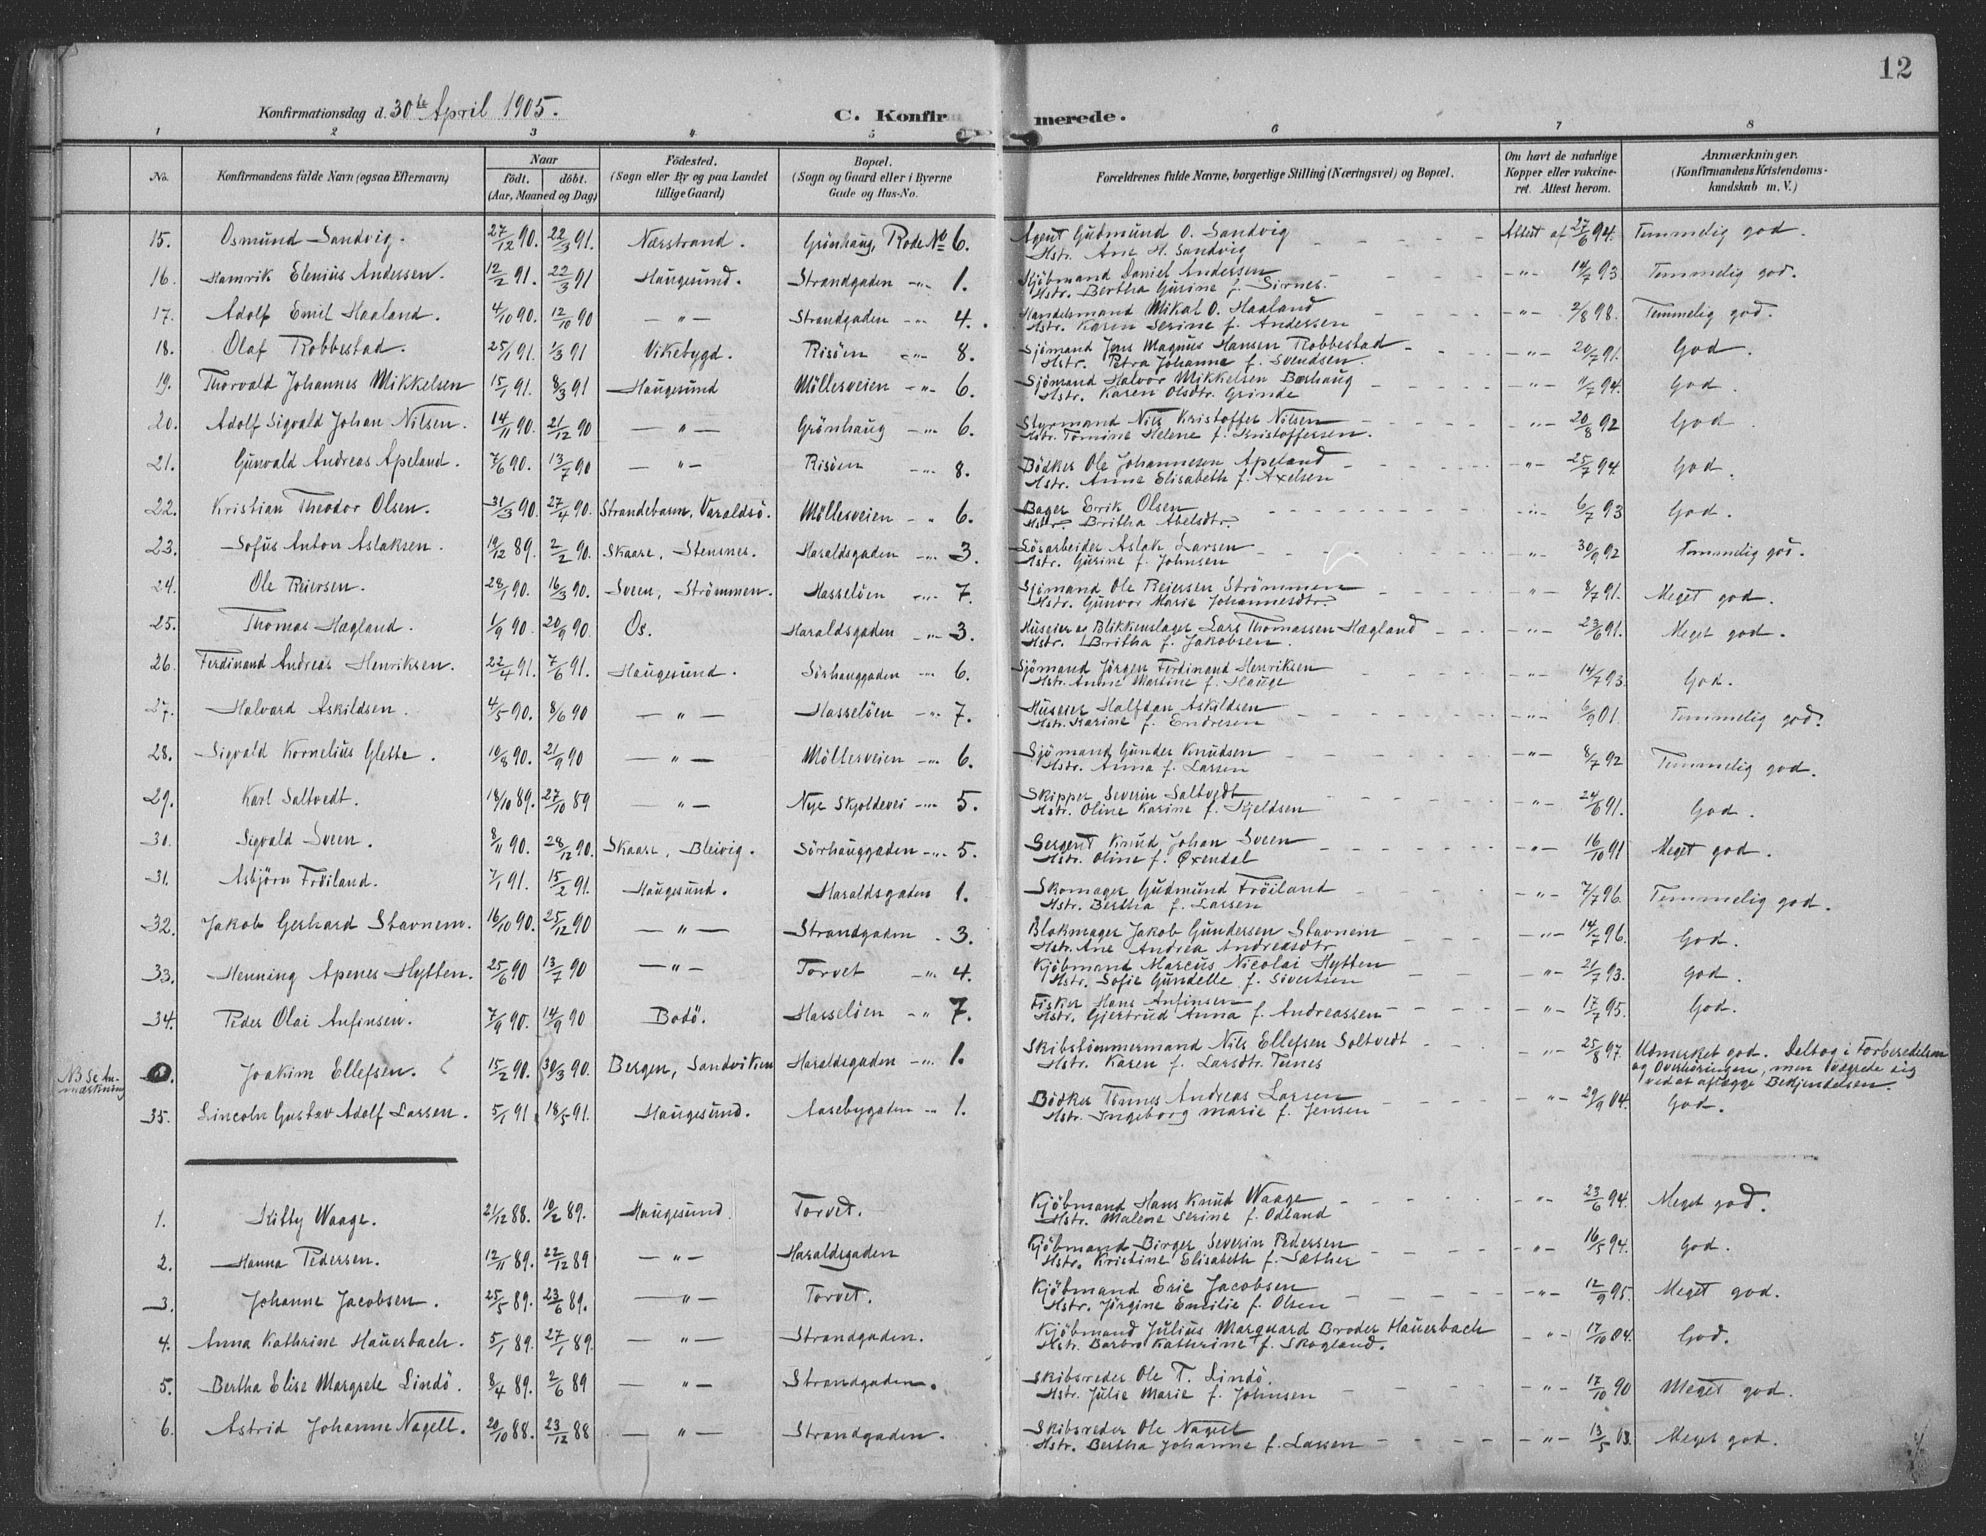 12
Konfirmationsdag d. 30te April 1905. C. Konfirmerede.
1 2 3 4 5 6 7 8
No. Konfirmandens fulde Navn (ogsaa Efternavn) Naar født. døbt. (Aar, Maaned og Dag) Fødested. (Sogn eller By og paa Landet tillige Gaard) Bopæl. (Sogn og Gaard eller i Byerne Gade og Hus-No. Forældrenes fulde Navne, borgerlige Stilling (Næringsvei) og Bopæl. Om havt de naturlige Kopper eller vaccineret. Attest herom. Anmærkninger. (Konfirmandens Kristendomskundskab m. V.)
15. Osmund Sandvig. 27/12 90. 22/3 91. Nærstrand. Grönhaug, Rode No 6. Agent Gudmund O. Sandvig Attest af 27/6 94. Temmelig god.
Hstr. Ane H. Sandvig
16. Hamrik Elenius Andersen. 12/2 91. 22/3 91 Haugesund. Strandgaden -"- 1. Kjöbmand Daniel Andersen -"- 14/7 93 Temmelig god.
Hstr. Bertha Gurine f. Sirnes.
17. Adolf Emil Haaland. 4/10 90. 12/10 90 -"- Strandgaden -"- 4. Handelsmand Mikal O. Haaland -"- 2/8 98. Temmelig god.
Hstr. Karen Serine f. Andersen
18. Olaf Robbestad. 25/1 91. 1/3 91 Vikebygd. Risöen -"- 8. Sjömand Jens Magnus Hansen Robbestad -"- 20/7 91. God.
Hstr. Petra Johanne f. Svendsen.
19. Thorvald Johannes Mikkelsen 15/1 91. 8/3 91 Haugesund Möllesveien -"- 6. Sjömand Halvor Mikkelsen Bærhaug -"- 11/7 94. God.
Hstr. Karen Olsdtr. Grinde
20. Adolf Sigvald Johan Nilsen. 14/11 90. 21/12 90 -"- Grönhaug -"- 6. Styrmand Nils Kristoffer Nilsen -"- 20/8 92 God
Hstr. Tomine Helene f. Kristoffersen.
21. Gunvald Andreas Apeland. 7/6 90. 13/7 90 -"- Risöen -"- 8. Bödker Ole Johannesen Apeland -"- 25/7 94. God.
Hstr. Anne Elisabeth f. Axelsen
22. Kristian Theodor Olsen. 31/3 90. 27/4 90. Strandebarm, Varaldsö. Möllesveien -"- 6. Bager Erik Olsen -"- 6/7 93 God.
Hstr. Britha Abelsdtr.
23. Sofus Anton Aslaksen. 19/12 89. 2/2 90. Skaare, Stensnes. Haraldsgaden -"- 3. Lösarbeider Aslak Larsen -"- 30/9 92 Temmelig god.
Hstr. Gurine f. Johnsen
24. Ole Reiersen. 28/1 90. 16/3 90. Sveen, Strömmen. Hasselöen -"- 7. Sjömand Ole Reiersen Strömmen -"- 8/7 91. Meget god.
Hstr. Gunvor Marie Johannesdtr.
25. Thomas Hægland. 1/9 90. 20/9 90. Os. Haraldsgaden -"- 3. Huseier og Blikkenslager Lars Thomassen Hægland -"- 23/6 91. Meget god.
Hstr. Britha f. Jakobsen.
26. Ferdinand Andreas Henriksen. 22/4 91. 7/6 91. Haugesund. Sörhauggaden -"- 6. Sjömand Jörgen Ferdinand Henriksen -"- 14/7 93. God.
Hstr. Anne Martine f. Hauge
27. Halvard Askildsen. 4/5 90. 8/6 90 -"- Hasselöen -"- 7. Huseier Halfdan Askildsen -"- 6/9 01. Temmelig god.
Hstr. Karine f. Endresen
28. Sigvald Kornelius Glette. 10/8 90. 21/9 90 -"- Möllesveien -"- 6. Sjömand Gunder Knudsen -"- 8/7 92 Temmelig god.
Hstr. Anna f. Larsen
29. Karl Saltvedt. 18/10 89. 27/10 89 -"- Nye Skjoldevei -"- 5. Skipper Severin Saltvedt -"- 24/6 91. God.
Hstr. Oline Karine f. Kjeldsen
30. Sigvald Sveen. 8/11 90. 28/12 90. Skaare, Bleivig. Sörhauggaden -"- 5. Sergent Knud Johan Sveen -"- 16/10 91 Meget god.
Hstr. Oline f. Oxendal
31. Asbjörn Fröiland. 7/1 91. 15/2 91. Haugesund. Haraldsgaden 1. Skomager Gudmund Fröiland -"- 7/7 96. Temmelig god.
Hstr. Bertha f. Larsen
32. Jakob Gerhard Stavnem. 16/10 90. 25/12 90 -"- Strandgaden 3. Blokmager Jakob Gundersen Stavnem -"- 14/7 96. God.
Hstr. Ane Andrea Andreasdtr
33. Henning Apenes Hytten. 25/6 90 13/7 90 -"- Torvet -"- 4. Kjöbmand Marcus Nicolai Hytten -"- 21/7 93. god.
Hstr. Sofie Gundelle f. Sivertsen
34. Peder Olai Anfinsen. 7/9 90. 14/9 90 Bodö. Hasselöen -"- 7. Fisker Hans Anfinsen -"- 17/7 95. God.
Hstr. Gjertrud Anna f. Andreassen
NB Se Anmærkning Joakim Ellefsen. 15/2 90. 30/3 90. Bergen, Sandviken Haraldsgaden -"- 1. Skibstömmermand Nils Ellefsen Saltvedt -"- 25/8 97. Udmerket god. Deltog i Forberedelsen
Hstr. Karen f. Larsdtr. Tenes og Overhöringen, men vægrede sig ved at aflægge Bekjendelsen.
35. Lincoln Gustav Adolf Larsen. 5/1 91. 18/5 91. Haugesund. Aasebygaden -"- 1. Bödker Tönnes Andreas Larsen -"- 29/9 04. God.
Hstr. Ingeborg Marie f. Jensen
1. Kitty Waage. 21/12 88. 10/2 89. Haugesund. Torvet. Kjöbmand Hans Knud Waage -"- 23/6 94. Meget god.
Hstr. Malene Serine f. Odland
2. Hanna Pedersen. 12/11 89. 22/12 89 -"- Haraldsgaden Kjöbmand Birger Severin Pedersen -"- 16/5 94. God.
Hstr. Kristine Elisabeth f. Sæther
3. Johanne Jacobsen. 25/5 89. 23/6 89. -"- Torvet. Kjöbmand Eric Jacobsen -"- 12/9 95. Meget god.
Hstr. Jörgine Emilie f. Olsen
4. Anna Kathrine Hauerbach. 5/1 89. 27/1 89. -"- Strandgaden. Kjöbmand Julius Marquard Broder Hauerbach -"- 17/10 04. God.
Hstr. Barbro Kathrine f. Skogland.
5. Bertha Elise Margrete Lindö. 8/4 89. 2/6 89 -"- Strandgaden. Skibsreder Ole T. Lindö. -"- 17/10 90 Meget god.
Hstr. Julie Marie f. Johnsen
6. Astrid Johanne Nagell. 20/10 88. 23/12 88 -"- Strandgaden. Skibsreder Ole Nagell -"- 13/5 03. Meget god.
Hstr. Bertha Johanne f. Larsen